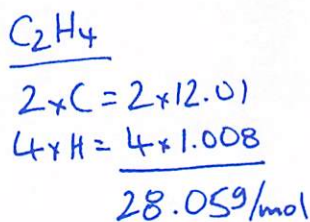 C₂H₄
2×C = 2×12.01
4×H = 4×1.008
28.05g/mol